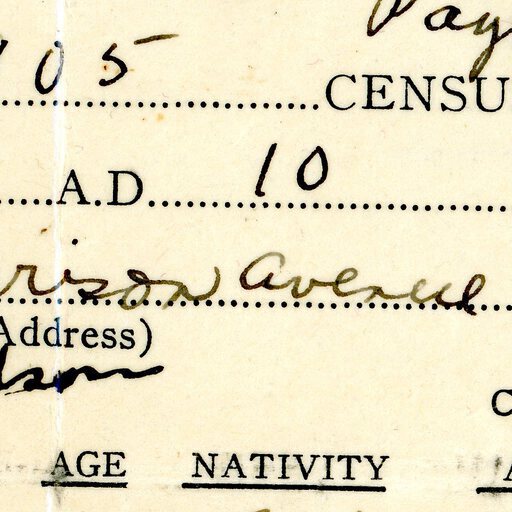 Pay
05 CENSU
A.D 10
rison Avenue
Address)
son
C
AGE NATIVITY A